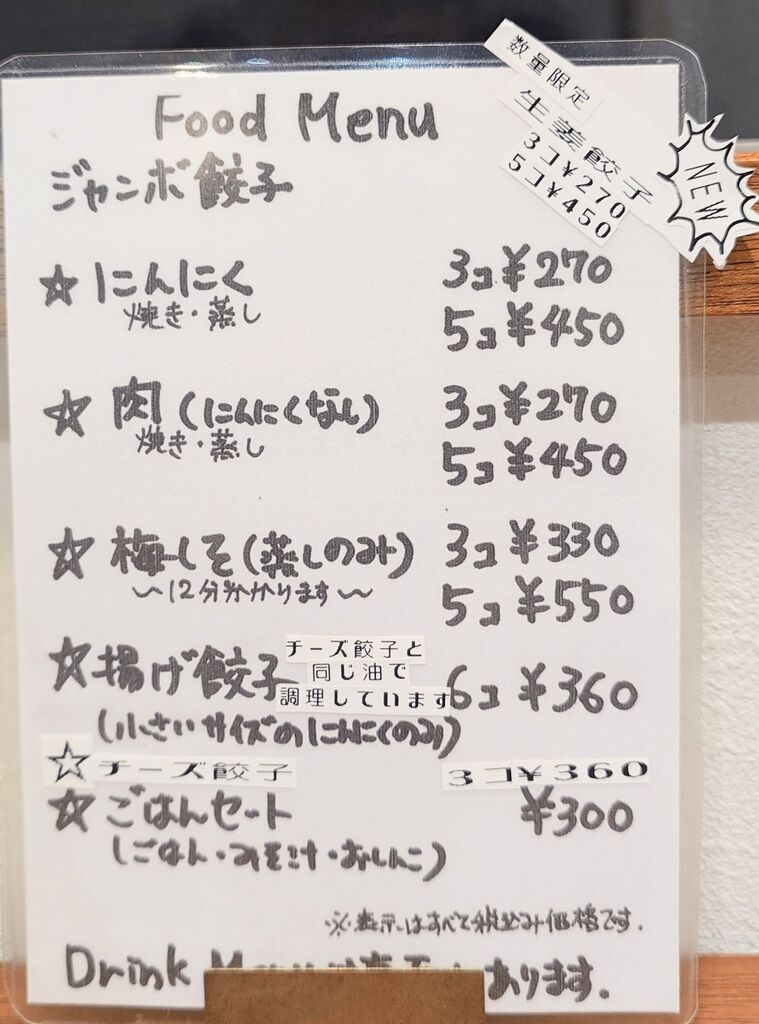 Food Menu
数量限定
生姜餃子
3コ¥270
5コ¥450
NEW
ジャンボ餃子
☆ にんにく 3コ ¥270
焼き・蒸し 5コ ¥450
☆ 肉(にんにくなし) 3コ ¥270
焼き・蒸し 5コ ¥450
☆ 梅しそ(蒸しのみ) 3コ ¥330
〜12分かかります〜 5コ ¥550
☆ 揚げ餃子 6コ ¥360
チーズ餃子と
同じ油で
調理しています
(小さいサイズのにんにくのみ)
☆チーズ餃子 3コ¥360
☆ ごはんセート ¥300
(ごはん・みそ汁・おしんこ)
※表示はすべて税込み価格です.
Drink あります.